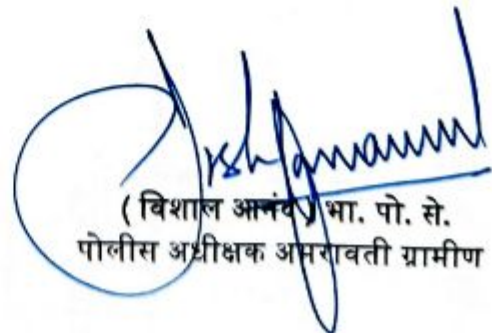 ( विशाल आनंद ) भा. पो. से.
पोलीस अधीक्षक अमरावती ग्रामीण